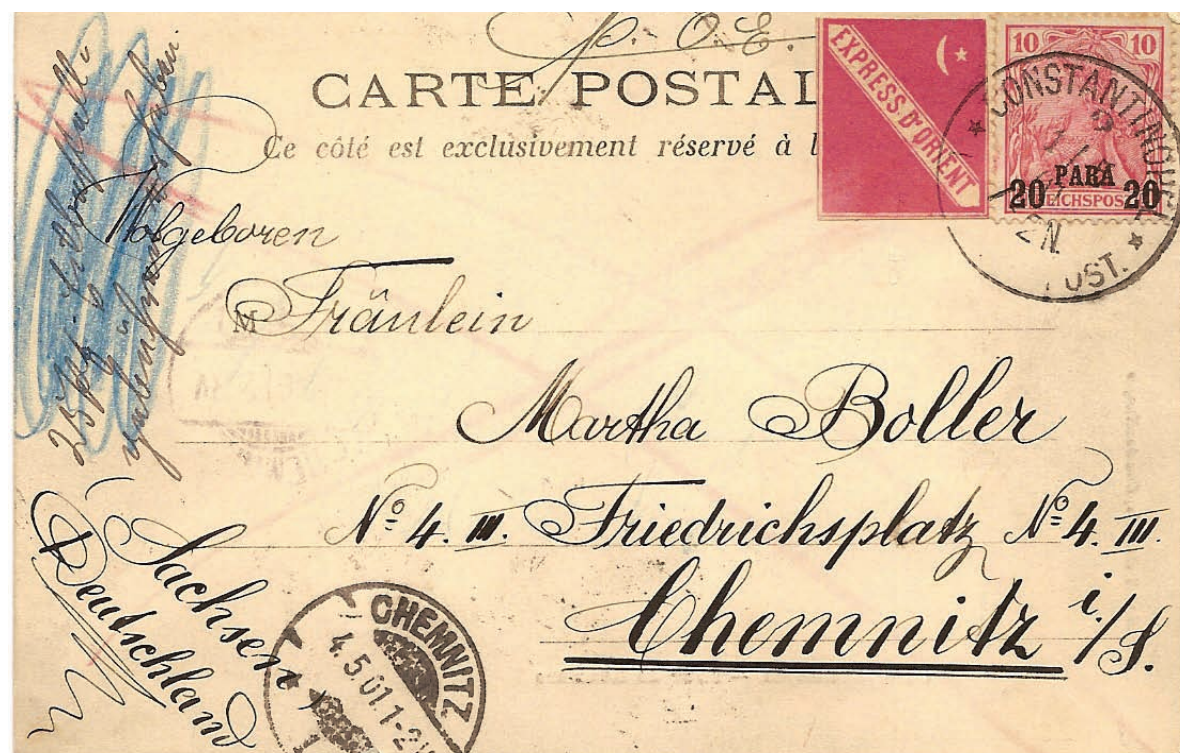 p. O. E.
CARTE POSTAL
Ce côté est exclusivement réservé à l
EXPRESS D'ORIENT
10 10
20 PARA 20
REICHSPOST
CONSTANTINOPEL
POST.
Wolgeboren
M Fräulein
Martha Boller
Nº 4. III. Friedrichsplatz Nº 4. III.
Chemnitz i/S.
Sachsen
Deutschland
CHEMNITZ
4.5.01.1-2
1